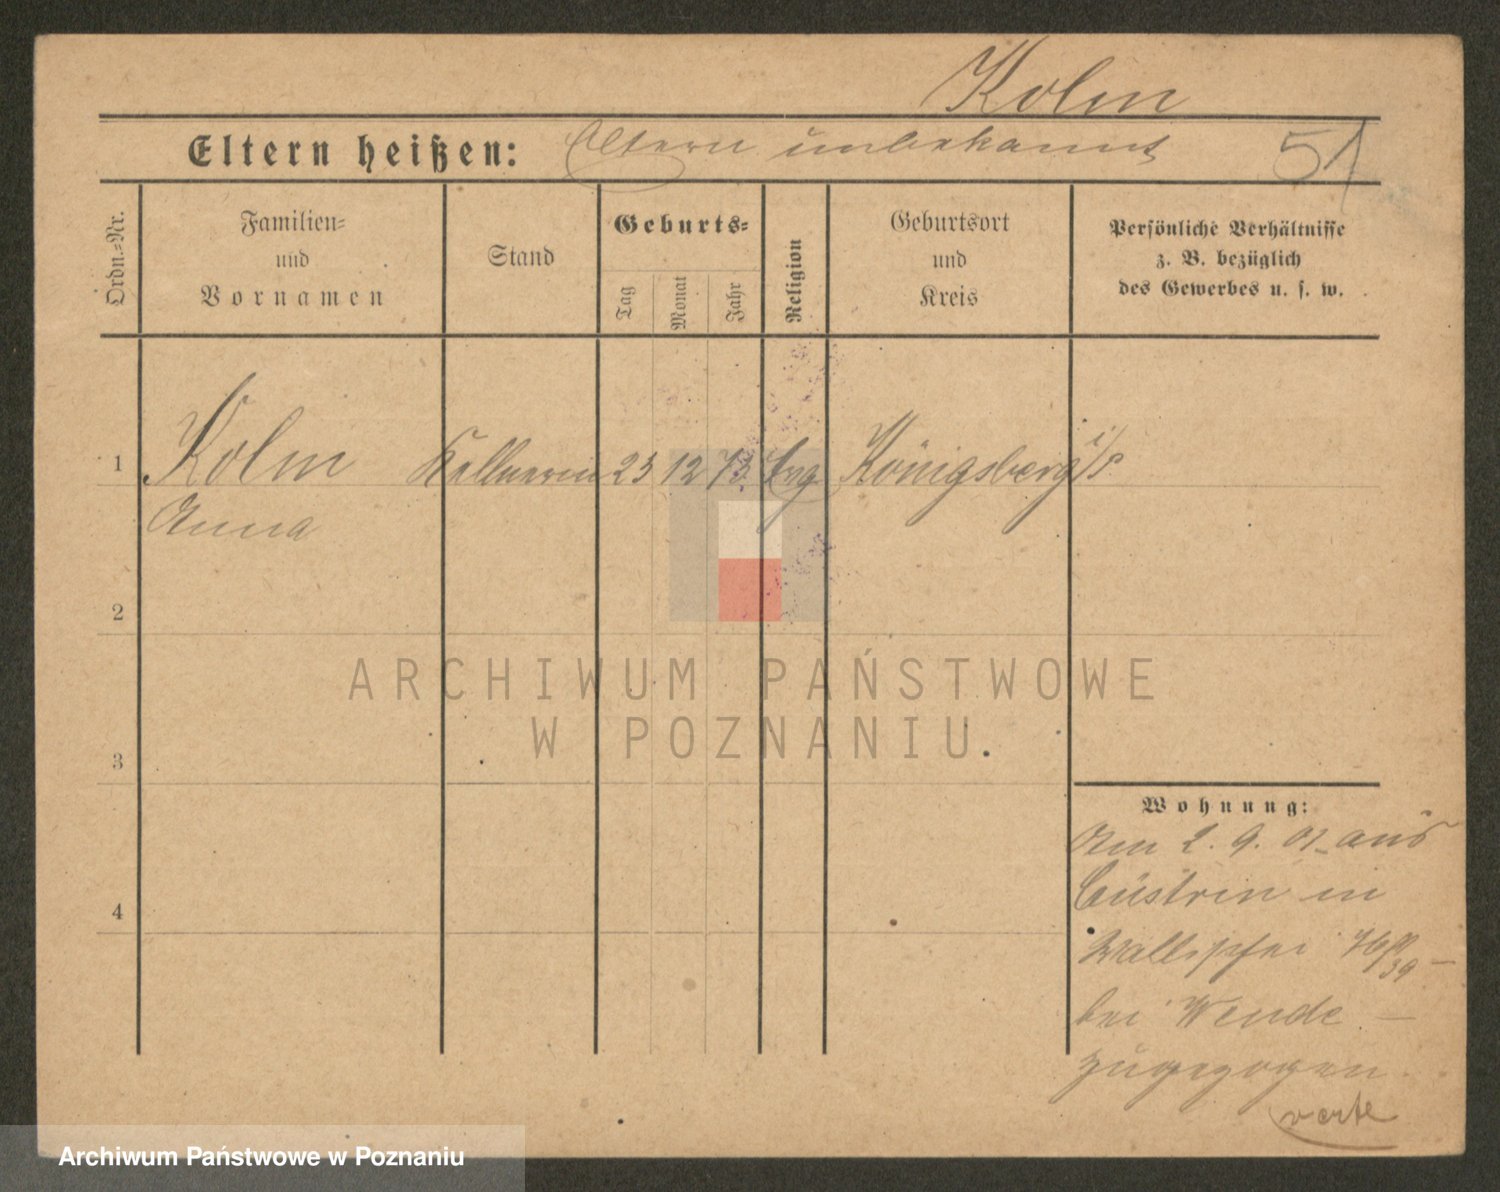 Kolm
Eltern heißen: Eltern unbekannt 51
Ordn.-Nr.
Familien-
und
Vornamen
Stand
Geburts-
Tag
Monat
Jahr
Religion
Geburtsort
und
Kreis
Persönliche Verhältnisse
z. B. bezüglich
des Gewerbes u. s. w.
1 Kolm Kellnerin 23 12 73 Evg Königsberg i/P
Anna
2
ARCHIWUM PAŃSTWOWE
W POZNANIU
3
Wohnung:
Am 2. 9. 01 aus
Cüstrin in
4
Wallischei
39
bei Wende
zugezogen
verte
Archiwum Państwowe w Poznaniu